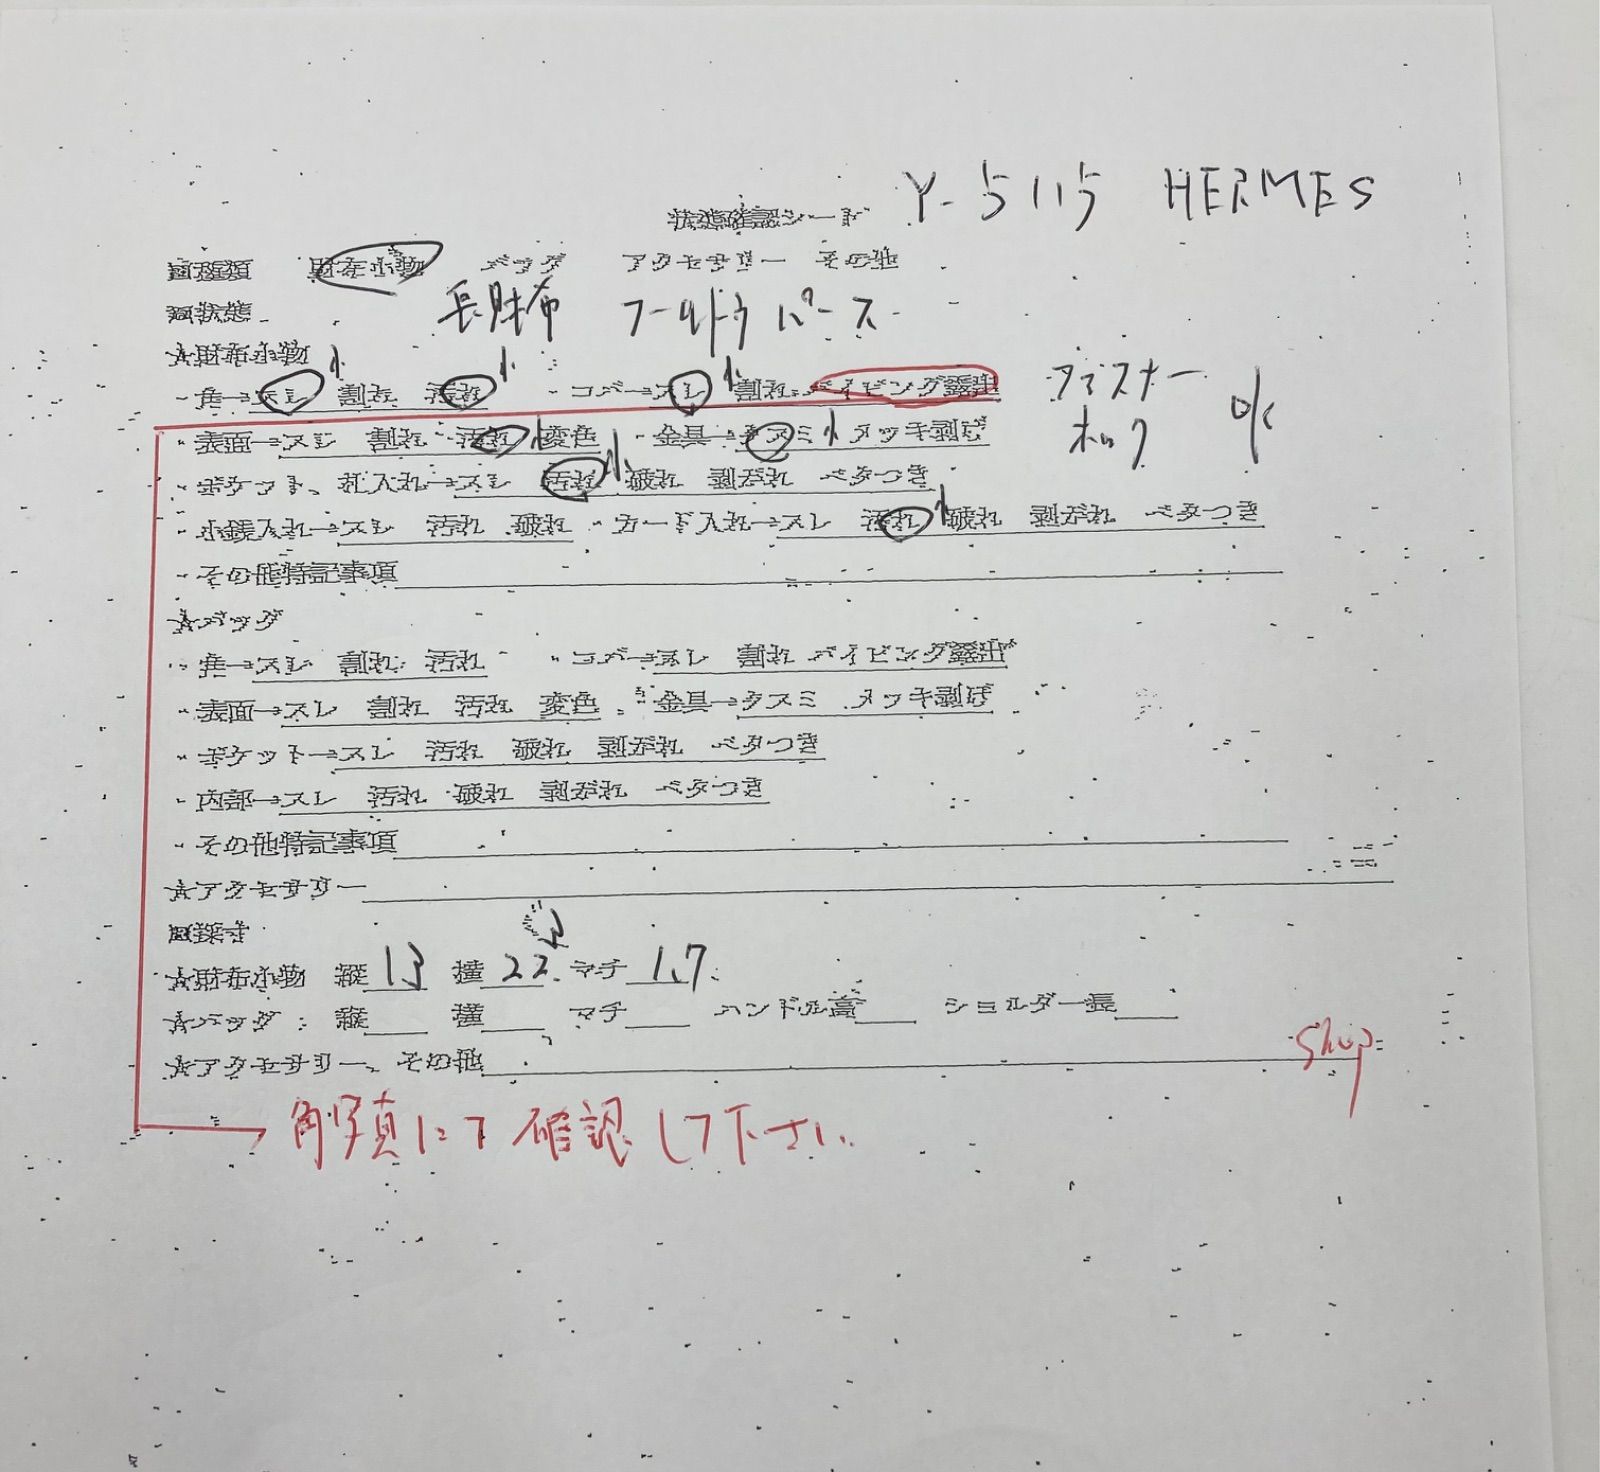 Y-5115 HERMES
状態確認シート
■種類 財布小物 バッグ アクセサリー その他
■状態 長財布 フールトゥ パース
★財布小物
・角→スレ 小 割れ 汚れ 小 ・コバ→スレ 小 割れ パイピング露出 ファスナー
・表面→スレ 割れ 汚れ 小 変色 ・金具→クスミ 小 メッキ剥げ ホック ok
・ポケット、札入れ→スレ 汚れ 小 破れ 剥がれ ベタつき
・小銭入れ→スレ 汚れ 破れ ・カード入れ→スレ 汚れ 小 破れ 剥がれ ベタつき
・その他特記事項
★バッグ
・角→スレ 割れ 汚れ ・コバ→スレ 割れ パイピング露出
・表面→スレ 割れ 汚れ 変色 ・金具→クスミ メッキ剥げ
・ポケット→スレ 汚れ 破れ 剥がれ ベタつき
・内部→スレ 汚れ 破れ 剥がれ ベタつき
・その他特記事項
★アクセサリー
■採寸
★財布小物 縦 13 横 22 マチ 1.7
★バッグ 縦 横 マチ ハンドル高 ショルダー長
★アクセサリー、その他
shop
角写真にて確認して下さい